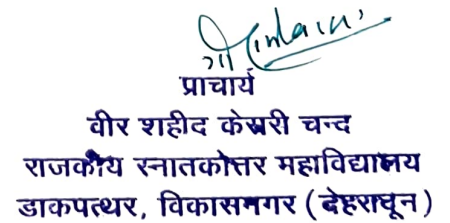 प्राचार्य
वीर शहीद केसरी चन्द
राजकीय स्नातकोत्तर महाविद्यालय
डाकपत्थर, विकासनगर (देहरादून)